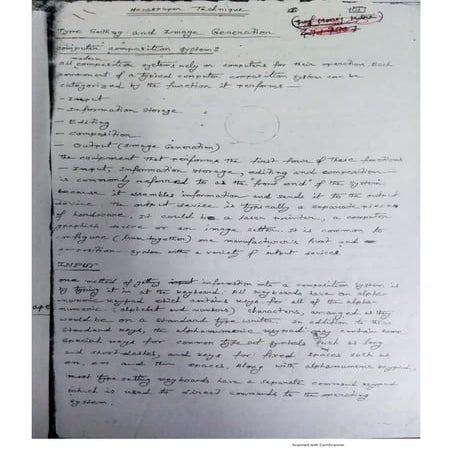 Newspaper Technique
Type Setting and Image Generation
Computer composition systems
modern
All composition systems rely on computers for their operation. Each
component of a typical computer composition system can be
categorized by the function it performs —
- Input
- Information Storage
- Editing
- Composition
- Output (Image Generation)
The equipment that performs the first four of these functions
- Input, Information storage, editing and composition
is commonly referred to as the "front end" of the system
because it assembles information and sends it to the output
device. The output device is typically a separate piece
of hardware. It could be a laser printer, a computer
graphics device or an image setter. It is common to
configure (link together) one manufacturer's front end
composition system with a variety of output devices
INPUT
One method of getting input information into a composition system is
by typing it in at the keyboard. All keyboards have an alpha
numeric keypad which contains keys for all of the alpha
numeric (alphabet and numbers) characters, arranged as they
would be on a standard type writer. In addition to these
standard keys, the alphanumeric keypad may contain some
special keys for common type set symbols such as long
and short dashes, and keys for fixed spaces such as
em, en and thin spaces. Along with alphanumeric keypad,
most type setting keyboards have a separate command keypad
which is used to direct commands to the operating
system.
Scanned with CamScanner